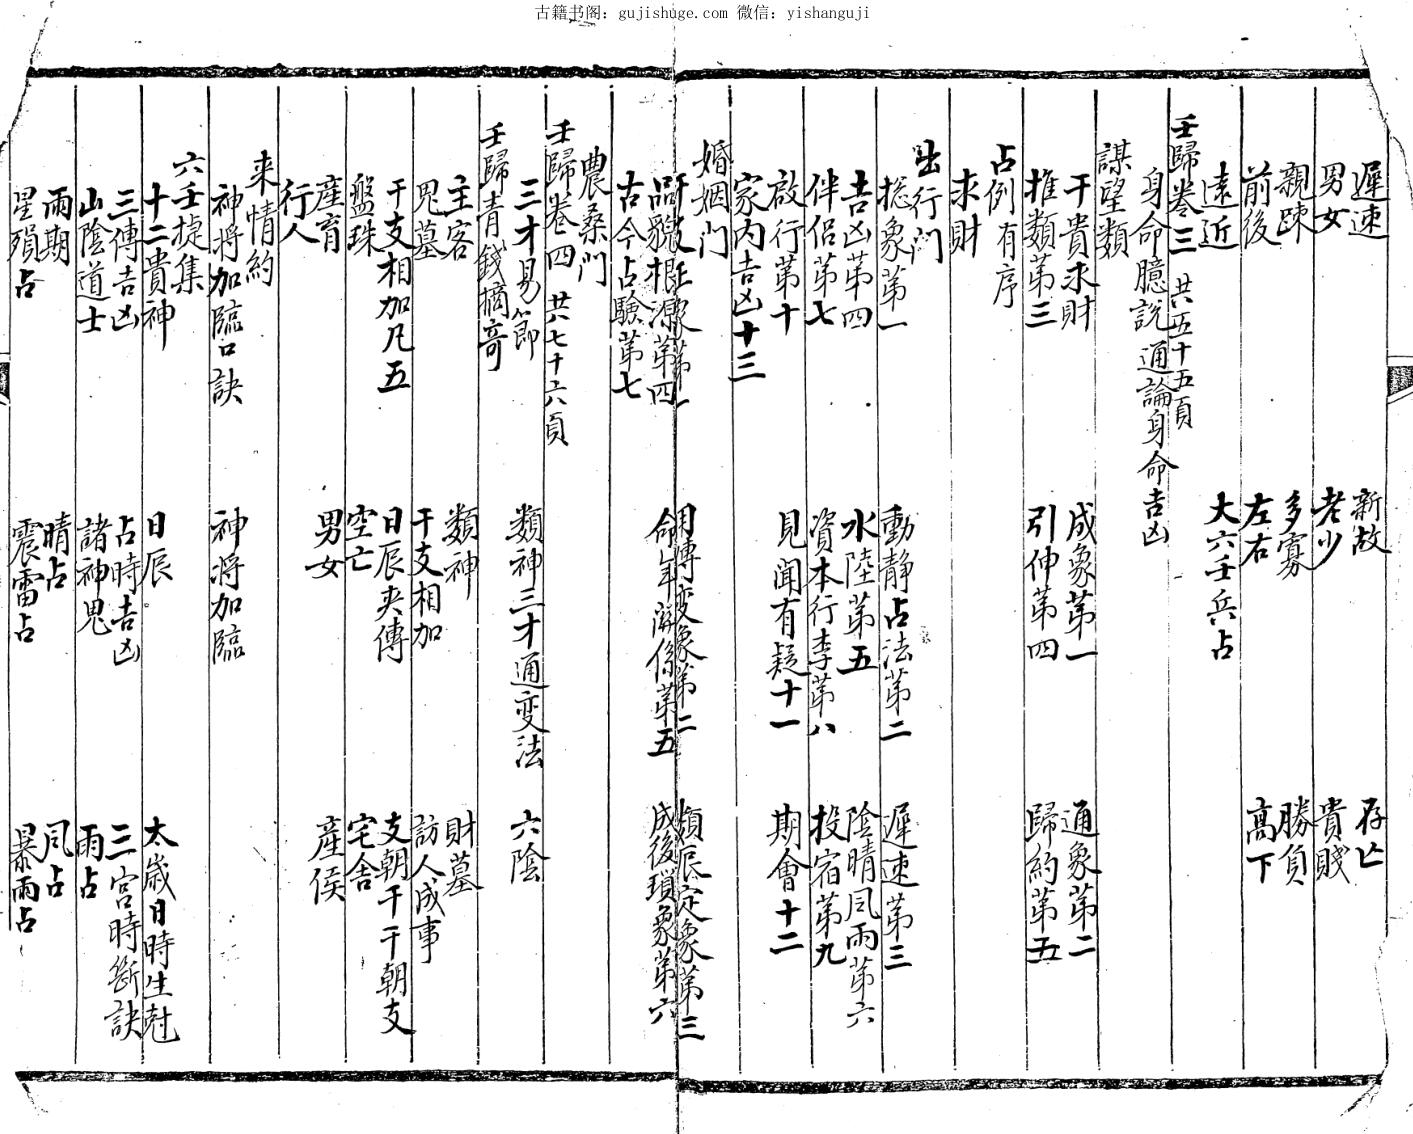 古籍书阁：gujishuge.com 微信：yishanguji
遲速 新故 存亡
男女 老少 貴賤
親踈 多寡 勝負
前後 左右 高下
遠近 大六壬兵占
壬歸卷三 共五十五頁
身命臆説 通論身命吉凶
謀望類
干貴求財 成象第一 通象第二
推類第三 引伸第四 歸約第五
占例有序
求財
出行門
捴象第一 動静占法第二 遲速第三
吉凶第四 水陸第五 陰晴風雨第六
伴侣第七 資本行李第八 投宿第九
啟行第十 見聞有疑十一 期會十二
家内吉凶十三
婚姻门
正象第一 用傳变象第二 類辰定象第三
品貌根源第四 命年關係第五 成後瑣象第六
古今占驗第七
農桑門
壬歸卷四 共七十六頁
三才易節 類神三才通変法 六陰
壬歸青錢摘奇
主客 類神 財墓
鬼墓 干支相加 訪人成事
干支相加凡五 日辰夹傳 支朝干干朝支
盤珠 空亡 宅舍
産育 男女 産侯
行人
来情約
神将加臨口訣 神将加臨
六壬捷集
十二貴神 日辰 太歲日時生尅
三傳吉凶 占時吉凶 三宫時斷訣
山陰道士 諸神鬼 雨占
雨期 晴占 風占
星殞占 震雷占 暴雨占